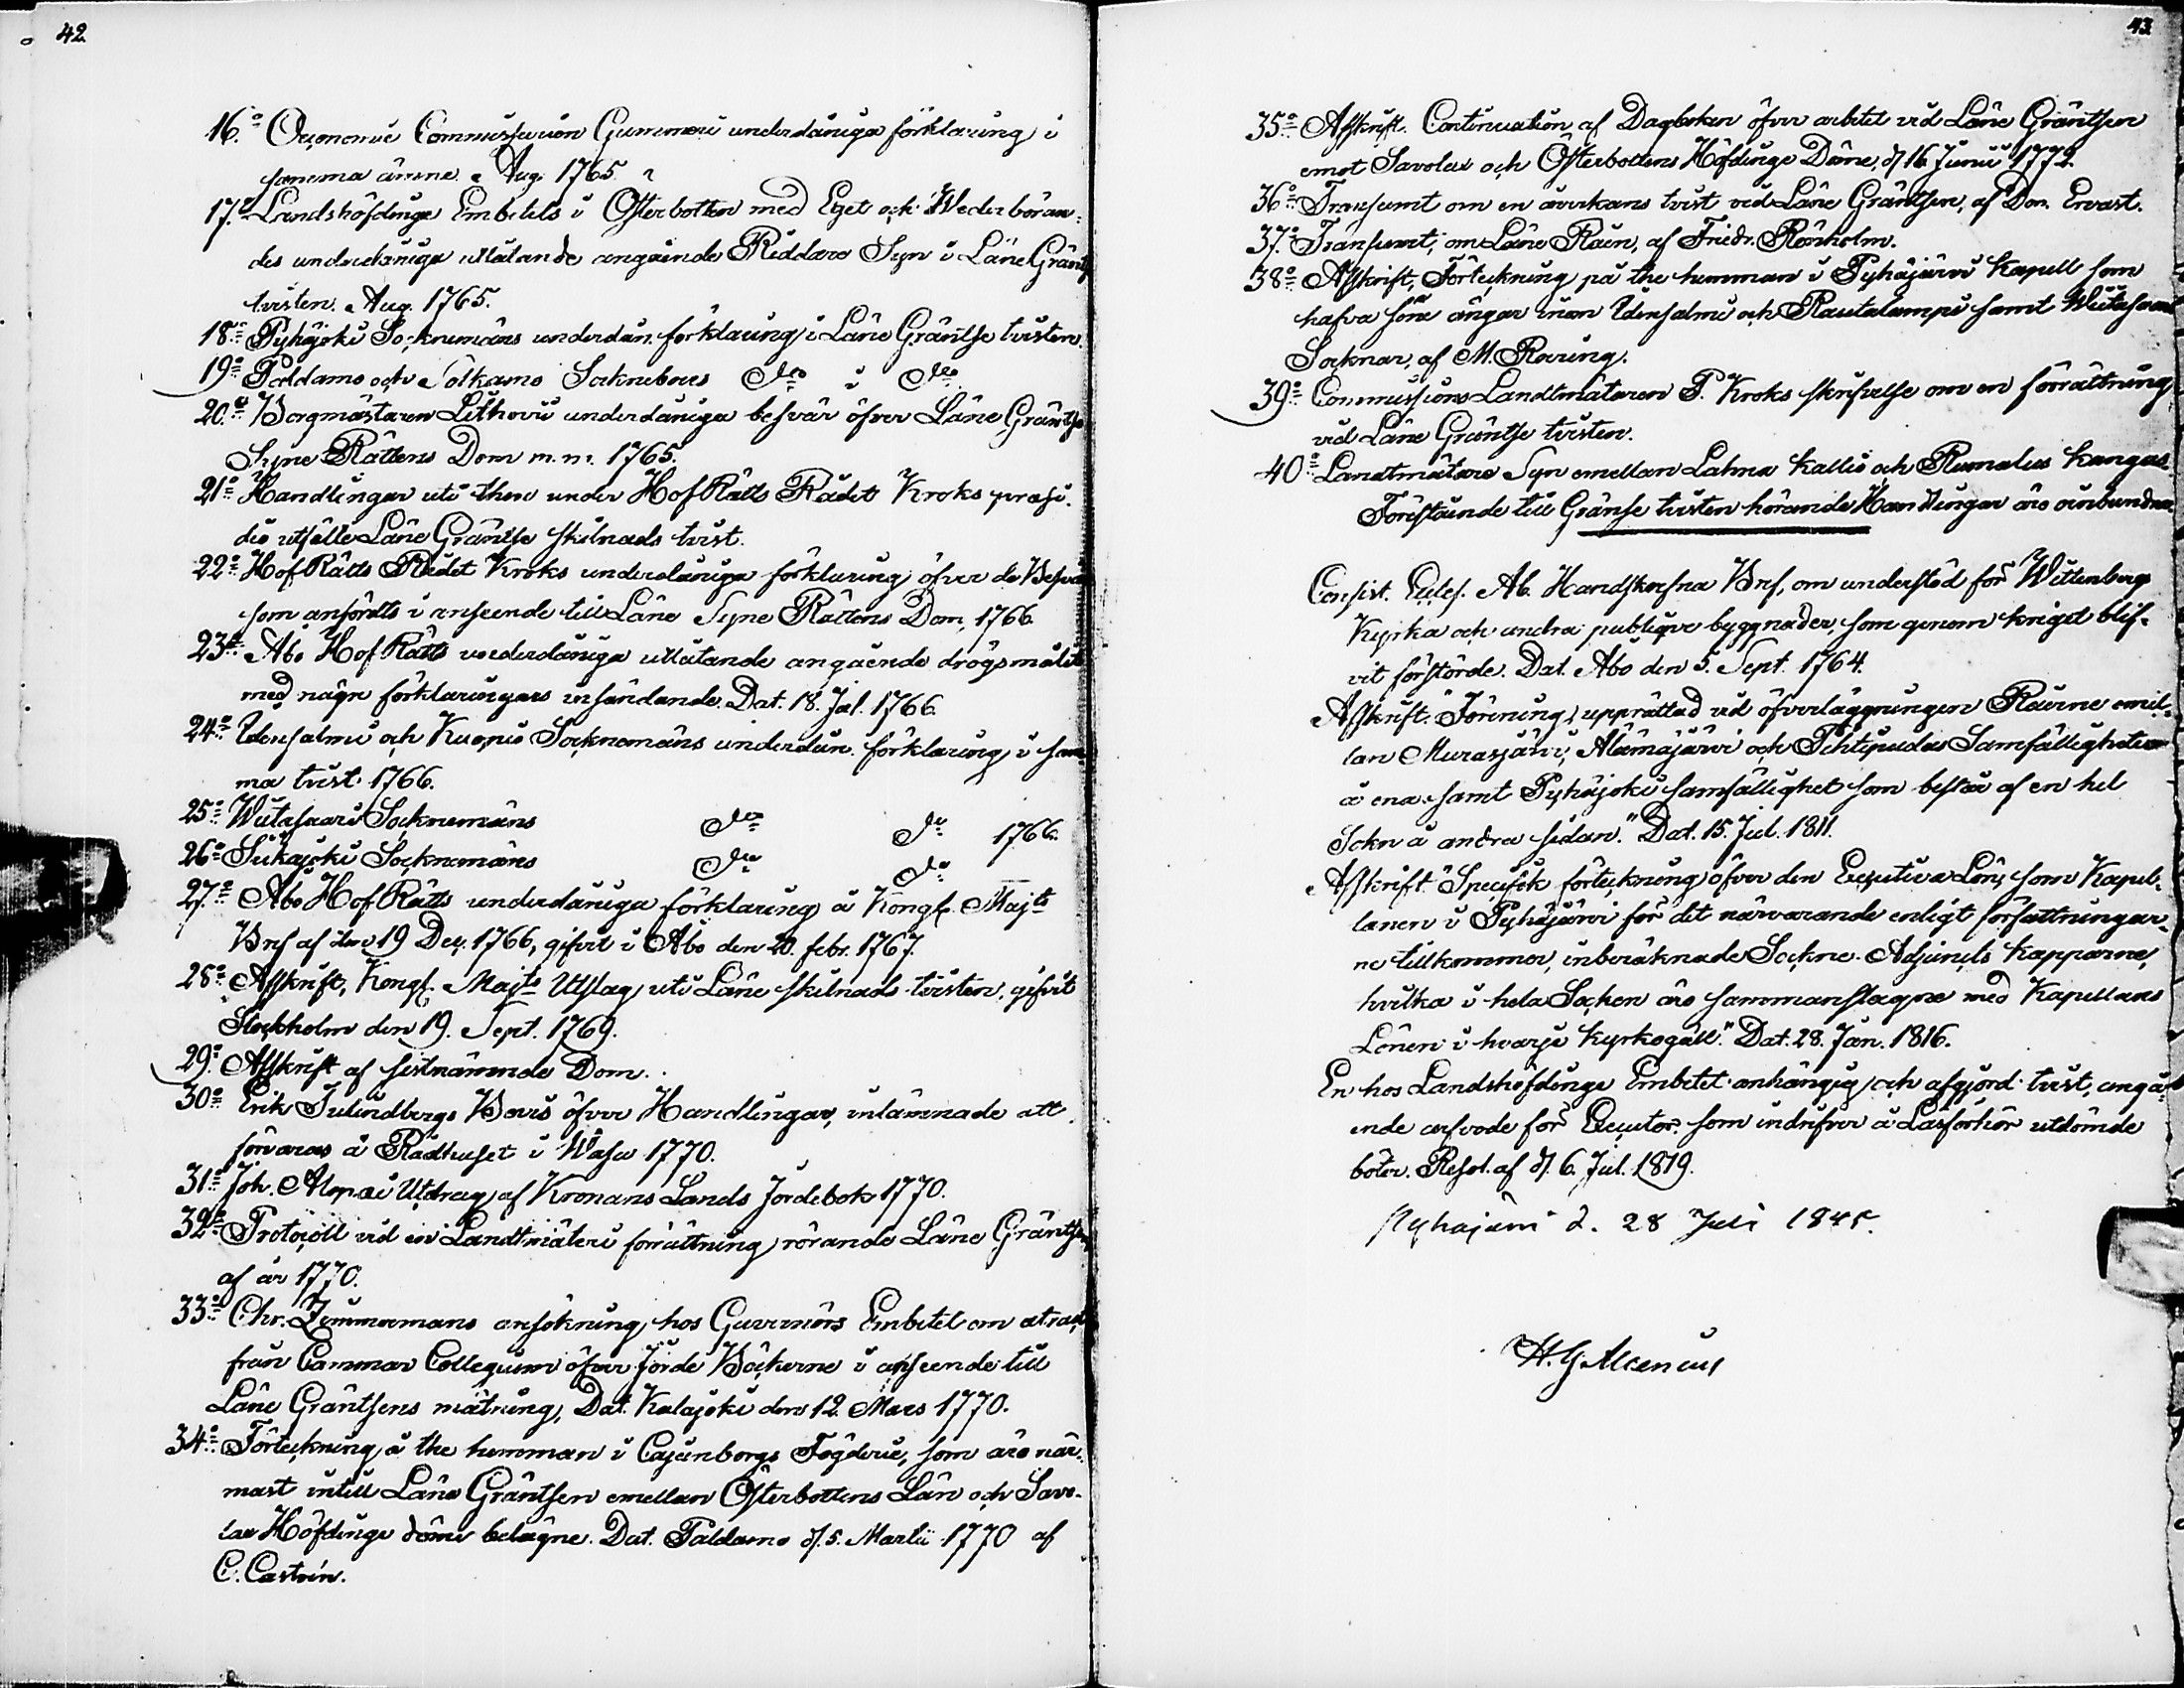 42
16.o Oeconomie Commissarien Gummeri underdåniga förklaring i
samma ämne. Aug. 1765
17.o Landshöfdinge Embetets i Österbotten med Eget och Wederböran-
des underdåniga utlåtande angående Riddare Syn i Läne Gränts
tvisten. Aug. 1765.
18.o Pyhäjoki Socknemäns underdån. förklaring i Läne Gräntse tvisten.
19.o Paldamo och Sotkamo Sockneboers do i do
20.o Borgmästaren Lithovii underdåniga besvär öfver Läne Gräntse
Syne Rättens Dom m. m. 1765.
21.o Handlingar uti then under HofRätts Rådet Kroks præsi-
dio utsälle Läne Gräntse skilnads tvist.
22.o HofRätts Rådet Kroks underdåniga förklaring öfver de Besvär
som anfördts i anseende till Läne Syne Rättens Dom, 1766.
23.o Åbo HofRätts underdåniga utlåtande angående drögsmålet
med någre förklaringars insändande. Dat. 18. Jul. 1766.
24.o Idensalmi och Kuopio Socknemäns underdån. förklaring i sam-
ma tvist. 1766.
25.o Wiitasaari Socknemäns do do 1766.
26.o Siikajoki Socknemäns do do
27.o Åbo HofRätts underdåniga förklaring å Kongl. Majts
Bref af den 19 Dec. 1766, gifvit i Åbo den 20. febr. 1767.
28.o Afskrift, Kongl. Majts Utslag uti Läne skilnads tvisten, gifvit
Stockholm den 19. Sept. 1769.
29.o Afskrift af sistnämnde Dom.
30.o Erik Tulindbergs Bevis öfver Handlingar, inlämnade att
förvaras å Rådhuset i Wasa 1770.
31.o Joh. Alopæi Utdrag af Kronans Lands Jordebok 1770.
32.o Protocoll vid en Landtmäteri förrättning rörande Läne Gräntsen
af år 1770.
33.o Chr. Zimmermans ansökning hos Guvernörs Embetet om utrag
från Cammar Collegium öfver Jorde Böckerne i anseende till
Läne Gräntsens mätning, Dat. Kalajoki den 12. Mars 1770.
34.o Förteckning å the hemman i Cajanborgs Fögderie, som äro när-
mast intill Läne Gräntsen emellan Österbottens Län och Savo-
lax Höfdinge döme belägne. Dat. Paldamo d. 5. Martii 1770 af
C. Castrén.
43
35.o Afskrift. Continuation af Dagboken öfver arbetet vid Läne Gräntsen
emot Savolax och Österbottens Höfdinge Döme, d. 16 Junii 1772.
36.o Transumt om en åverkans tvist ved Läne Gräntsen, af Dan. Ervast.
37.o Transumt, om Läne Råen, af Friedr. Rönholm.
38.o Afskrift, Förteckning på the hemman i Pyhäjärvi Kapell som
hafva sine ängar inom Idensalmi och Rautalampi samt Wiitasaari
Socknar, af M. Roering.
39.o Commissions Landtmätaren P. Kroks skrifvelse om en förrättning
vid Läne Gräntse tvisten.
40.o Landtmätare Syn emellan Lahna Kallio och Rumalus Kangas.
Förestående till Gränse tvisten hörande Handlingar äro oinbundna.
Consist. Eccles. Ab. Handskrefna Bref, om understöd för Wittenbergs
Kyrka och andra publique byggnader, som genom kriget blif-
vit förstörde. Dat. Åbo den 5. Sept. 1764.
Afskrift. "Förening, upprättad vid öfverläggningen Råerne emel-
lan Murasjärvi, Alämäjärvi och Pihtipudas Samfälligheter
å ena samt Pyhäjoki samfällighet som består af en hel
Sokn å andra sidan." Dat. 15. Jul. 1811.
Afskrift. "Specifik förteckning öfver den Ecclesiastiva Lön, som Kapel-
lanen i Pyhäjärvi för det närvarande enligt författningar-
ne tillkommer, inberäknade Sockne Adjuncts Kapparne,
hvilka i hela Socken äro sammanslagne med Kapellans
Lönen i hvarje kyrkogäll." Dat. 28. Jan. 1816.
En hos Landshöfdinge Embetet anhängig och afgjord tvist, angå-
ende arfvode för Executor som indrifver å Läsförhör utdömde
böter. Resol. af d. 6. Jul. 1819.
Pyhäjärvi d. 28 Juli 1845.
H. G. Alcenius